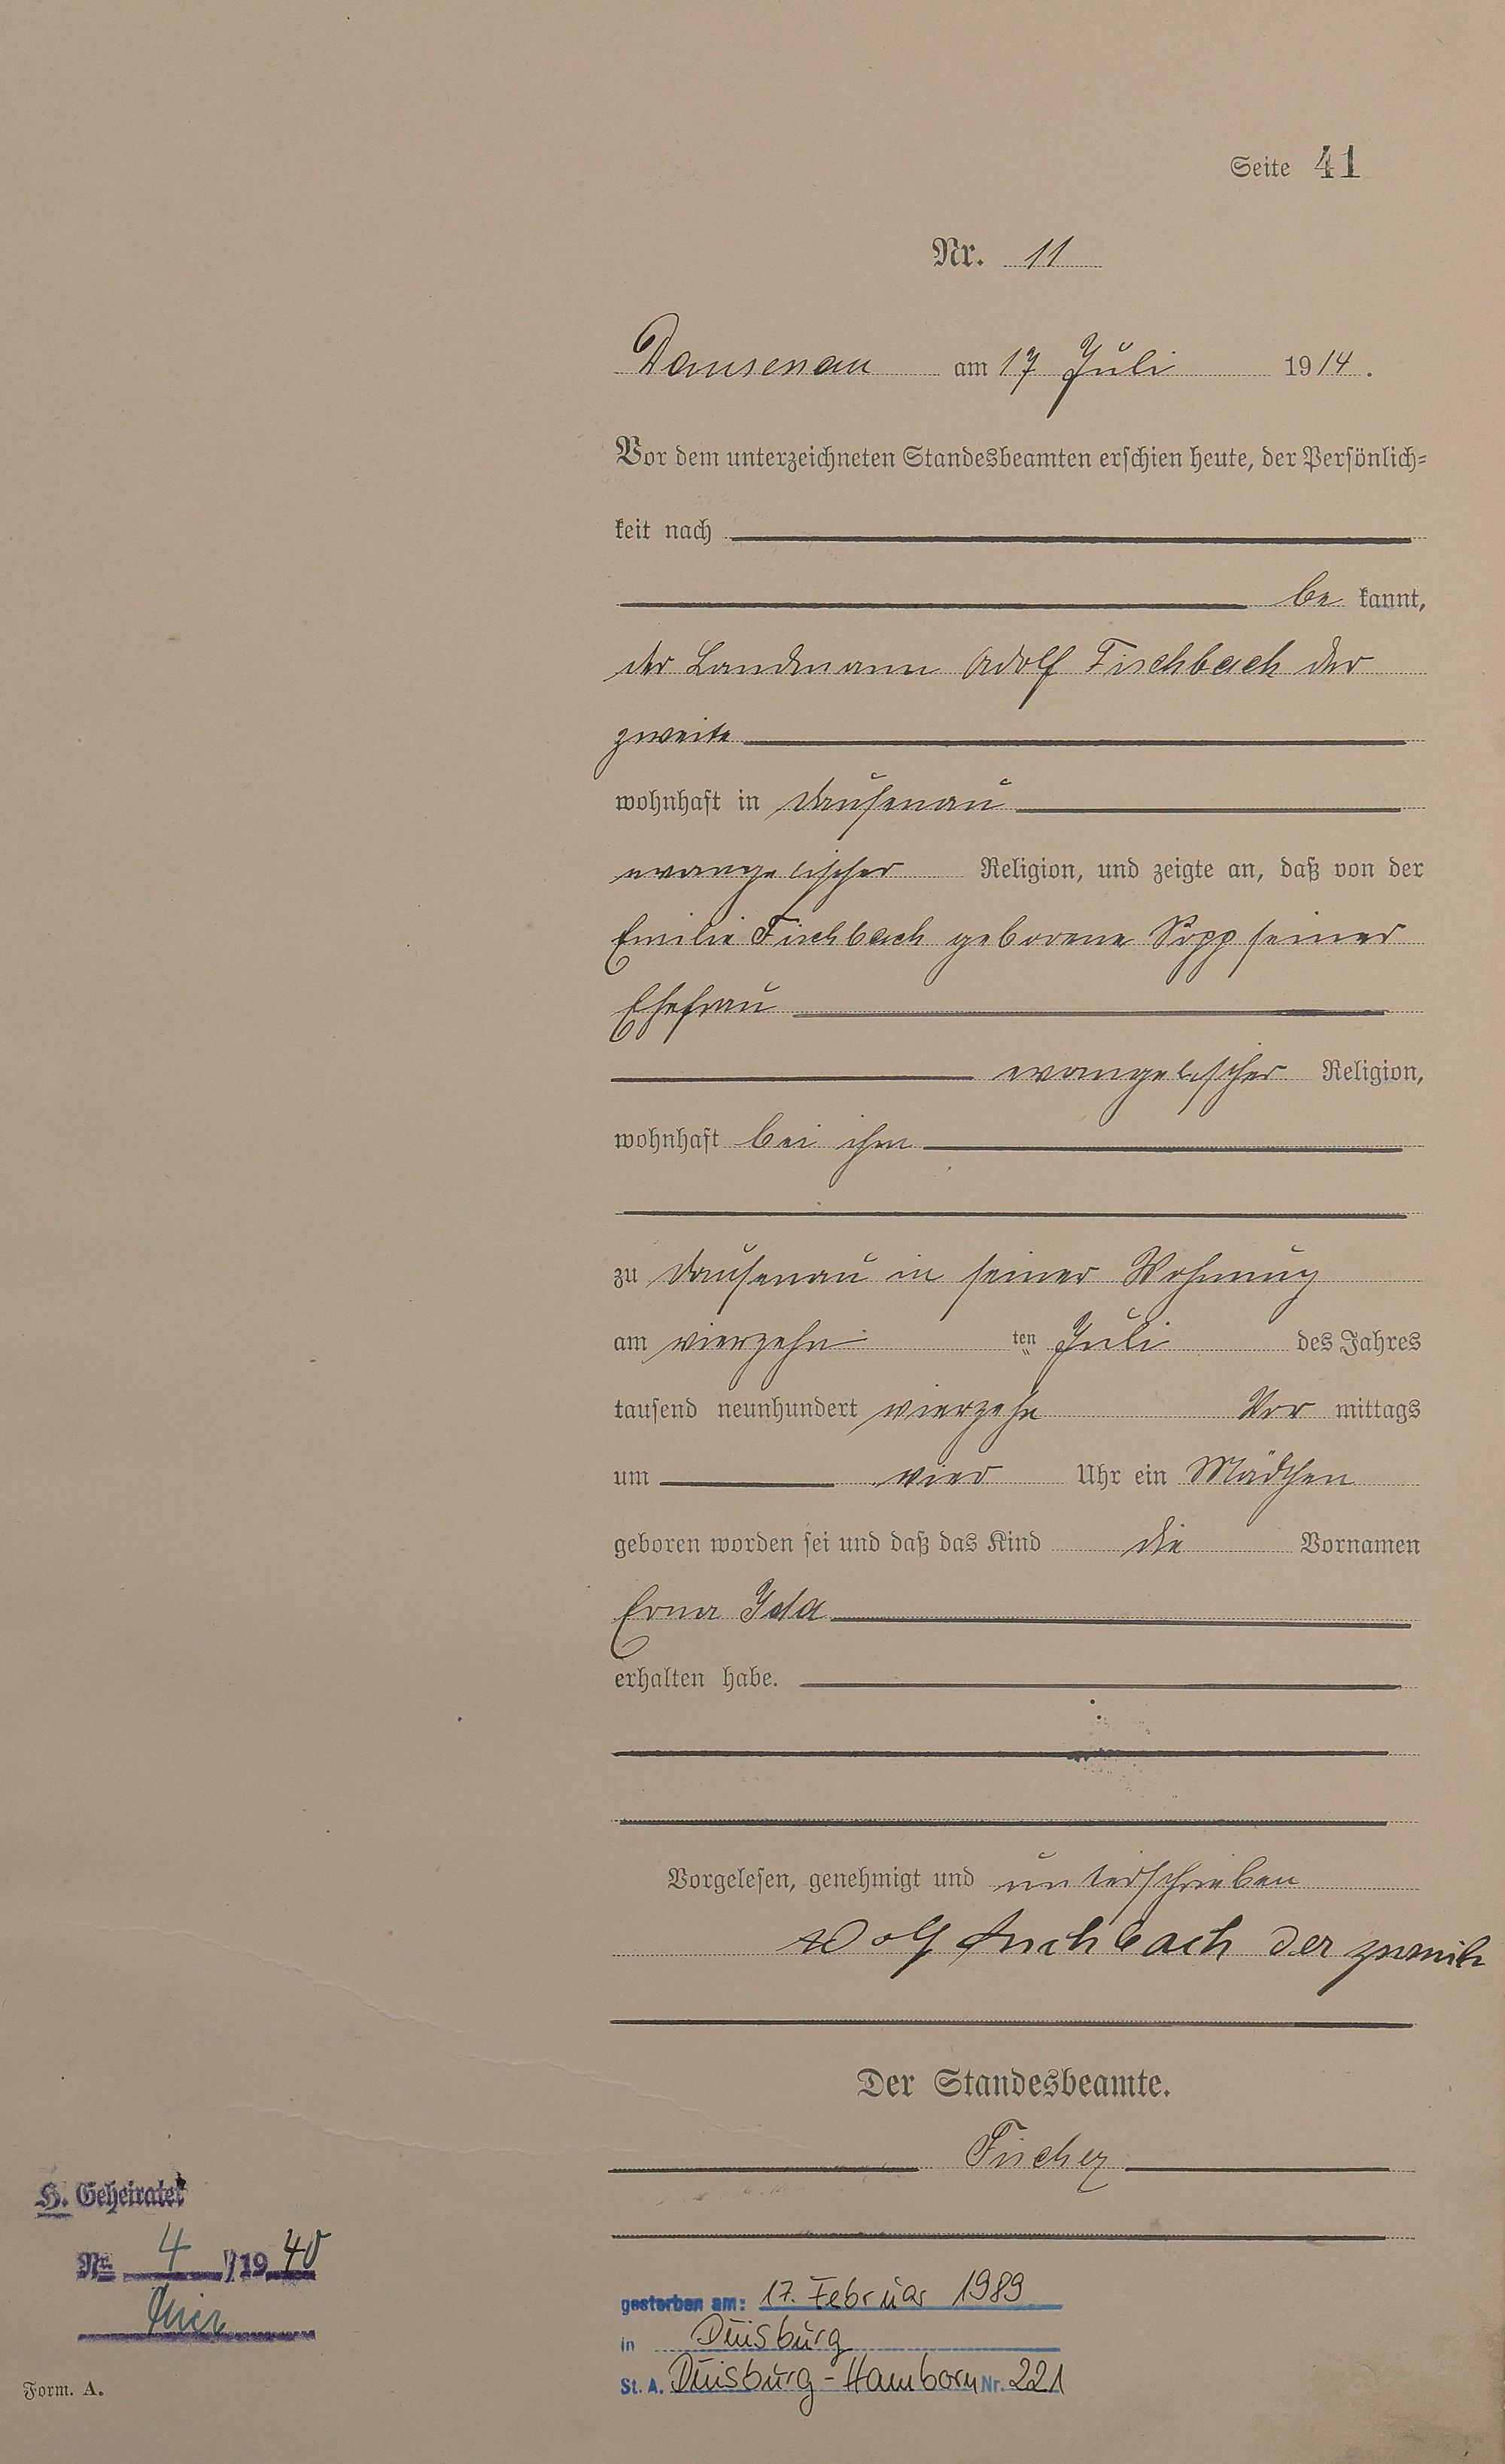 Seite 41
Nr. 11
Dausenau am 17 Juli 1914.
Vor dem unterzeichneten Standesbeamten erschien heute, der Persönlich=
keit nach
be kannt,
der Landmann Adolf Fischbach der
zweite
wohnhaft in Dausenau
evangelischer Religion, und zeigte an, daß von der
Emilie Fischbach geborene Sopp seiner
Ehefrau
evangelischer Religion,
wohnhaft bei ihm
zu Dausenau in seiner Wohnung
am vierzehn ten Juli des Jahres
tausend neunhundert vierzehn Vor mittags
um vier Uhr ein Mädchen
geboren worden sei und daß das Kind die Vornamen
Erna Ida
erhalten habe.
Vorgelesen, genehmigt und unterschrieben
Adolf Fischbach der zweite
Der Standesbeamte.
Fischer
H. Geheiratet
Nr. 4 /1940
hier
gestorben am: 17. Februar 1989
in Duisburg
St. A. Duisburg-Hamborn Nr. 221
Form. A.